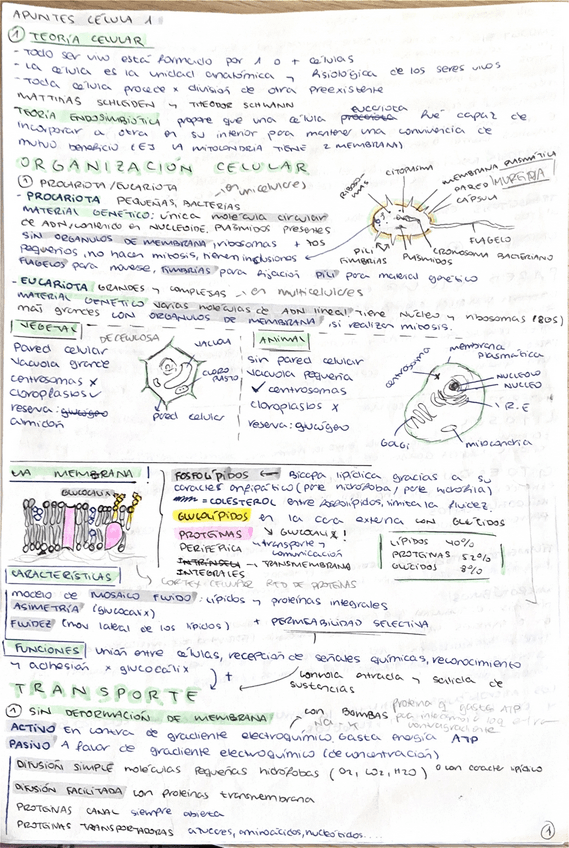 APUNTES CÉLULA 1
① TEORÍA CELULAR
- Todo ser vivo está formado por 1 o + células
- La célula es la unidad anatómica y fisiológica de los seres vivos
- Toda célula procede x división de otra preexistente
MATTHIAS SCHLEIDEN y THEODOR SCHWANN
TEORÍA ENDOSIMBIÓTICA propone que una célula eucciota fué capaz de
incorporar a otra en su interior para mantener una convivencia de
mutuo beneficio (EJ LA MITOCONDRIA TIENE 2 MEMBRANA)
ORGANIZACIÓN CELULAR
① PROCARIOTA/EUCARIOTA
→ unicelulares
- PROCARIOTA PEQUEÑAS, BACTERIAS
MATERIAL GENÉTICO: única molécula circular
de ADN, contenido en NUCLEOIDE, PLÁSMIDOS presentes
SIN ORGÁNULOS DE MEMBRANA, ribosomas + 70s
pequeños, no hacen mitosis, tienen inclusiones
FLAGELOS para moverse, FIMBRIAS para fijación PILI para material genético
RIBOSOMAS
CITOPLASMA
MEMBRANA PLASMÁTICA
PARED MUREINA
CÁPSULA
FLAGELO
CROMOSOMA BACTERIANO
PLÁSMIDOS
PILI
FIMBRIAS
- EUCARIOTA GRANDES y COMPLEJAS → en multicelulares
MATERIAL GENÉTICO varias moléculas de ADN lineal, tiene núcleo y ribosomas (80S)
más grandes CON ORGÁNULOS DE MEMBRANA, si realizan mitosis.
VEGETAL
DE CELULOSA
Pared celular
Vacuola grande
centrosomas x
cloroplastos ✓
reserva: glucógeno
almidón
VACUOLA
CLOROPLASTO
pared celular
ANIMAL
sin pared celular
vacuola pequeña
✓ centrosomas
cloroplastos x
reserva: glucógeno
centrosoma
membrana
plasmática
NUCLEOLO
NUCLEO
R.E
Golgi
mitocondria
LA MEMBRANA!
GLUCOCALIX
FOSFOLÍPIDOS ← Bicapa lipídica gracias a su
carácter anfipático (parte hidrófoba / parte hidrófila)
= COLESTEROL entre fosfolípidos, limita la fluidez
GLUCOLÍPIDOS en la cara externa con GLÚCIDOS
↘ GLUCOCALIX!
PROTEÍNAS
→ transporte y
comunicación
PERIFÉRICA
INTRÍNSECA → TRANSMEMBRANA
INTEGRALES
LÍPIDOS 40%
PROTEÍNAS 52%
GLÚCIDOS 8%
CORTEX CELULAR RED DE PROTEÍNAS
CARACTERÍSTICAS
modelo de MOSAICO FLUIDO: lípidos y proteínas integrales
ASIMETRÍA (glucocalix)
FLUIDEZ (mov lateral de los lípidos) + PERMEABILIDAD SELECTIVA
FUNCIONES unión entre células, recepción de señales químicas, reconocimiento
y adhesión x glucocálix + controla entrada y salida de
sustancias
TRANSPORTE
① SIN DEFORMACIÓN DE MEMBRANA
→ con BOMBAS
Na - K
ACTIVO En contra de gradiente electroquímico, gasta energía ATP
PASIVO A favor de gradiente electroquímico (de concentración)
DIFUSIÓN SIMPLE moléculas pequeñas hidrófobas (O2, CO2, H2O) o con carácter lipídico
DIFUSIÓN FACILITADA con proteínas transmembrana
PROTEÍNAS CANAL siempre abierta
PROTEÍNAS TRANSPORTADORAS azúcares, aminoácidos, nucleótidos....
①